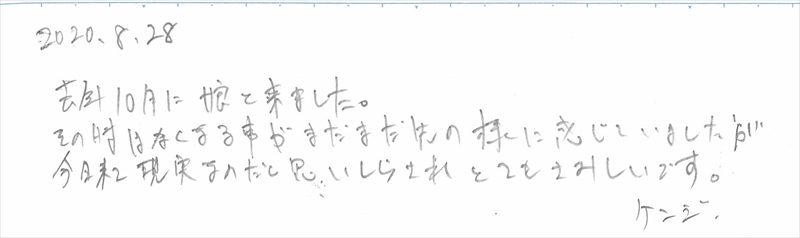 2020.8.28
去年10月に娘と来ました。
その時はなくなる事がまだまだ先の様に感じていましたが
今日来て現実なのだと思いしらされとてもさみしいです。
ケンジ.